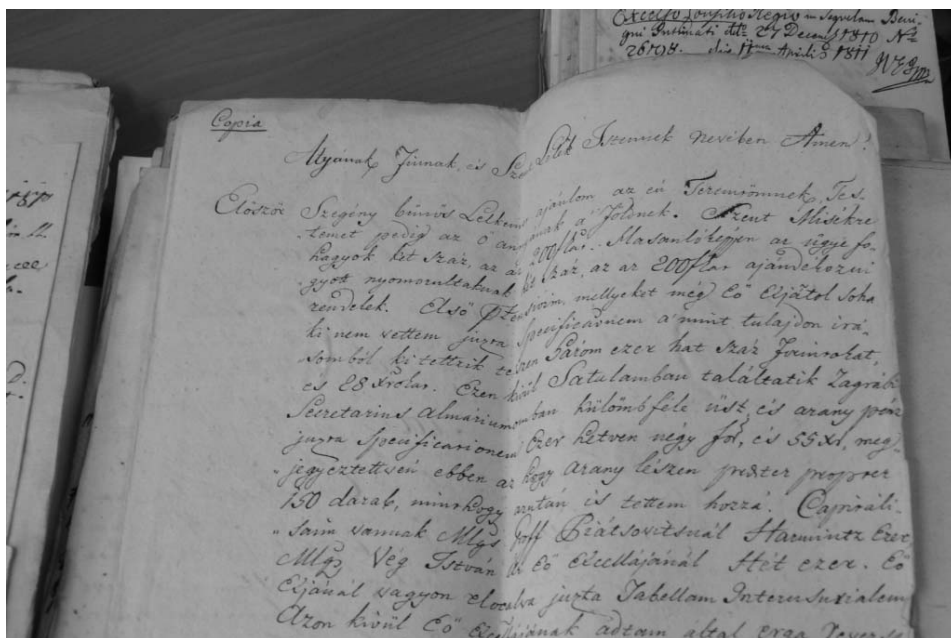 Excelso Consilio Regio in sequelam Beni-
gni Intimati dto 27 Decembris 1810 Nro
26198. die 11ma Aprilis 1811
Copia
Atyának Fiunak, és Szent Lélek Istennek nevében Amen!
Előszőr Szegény bünös Lelkemet ajánlom az én Teremtőmnek, Tes-
temet pedig az ő annyának a' Földnek. Szent Misékre
hagyok két száz, az az 200 flor. Hasonlóképpen az ügye fo-
gyott nyomorultaknak két száz, az az 200 flor ajándékozni
rendelek. Első mellyeket még Eő Exjától soha
ki nem vettem juxta Specificationem a' mint tulajdon irá-
somból ki tettzik teszen Három ezer hat száz forintokat,
es 28 Xrokar. Ezen kivül Satulamban találtatik Zagrábi
Secretarius Almáriumomban külömbféle üst, és arany pénz
juxta Specificationem Ezer hetven négy for, és 55 Xr, meg-
jegyeztetvén ebben az hogy arany lészen praeter propter
150 darab, minthogy azután is tettem hozzá. Capitáli-
saim vannak Mlgs Groff Harmintz Ezer
Mlgs Vég István Ur Eő Excellájánál Hét ezer. Eő
Exjánál vagyon elocalva juxta Tabellam Interusurialem
Azon kivül Eő Excellájának adtam által erga